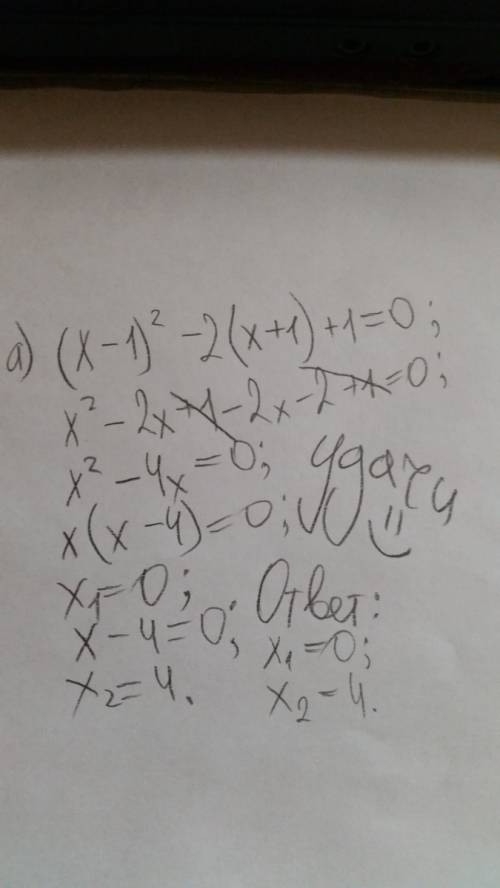 а) (x-1)² -2(x+1)+1=0;
x² -2x+1-2x-2+1=0;
x² -4x=0; Удачи
x(x-4)=0;
x₁=0; Ответ:
x-4=0; x₁=0;
x₂=4. x₂=4.